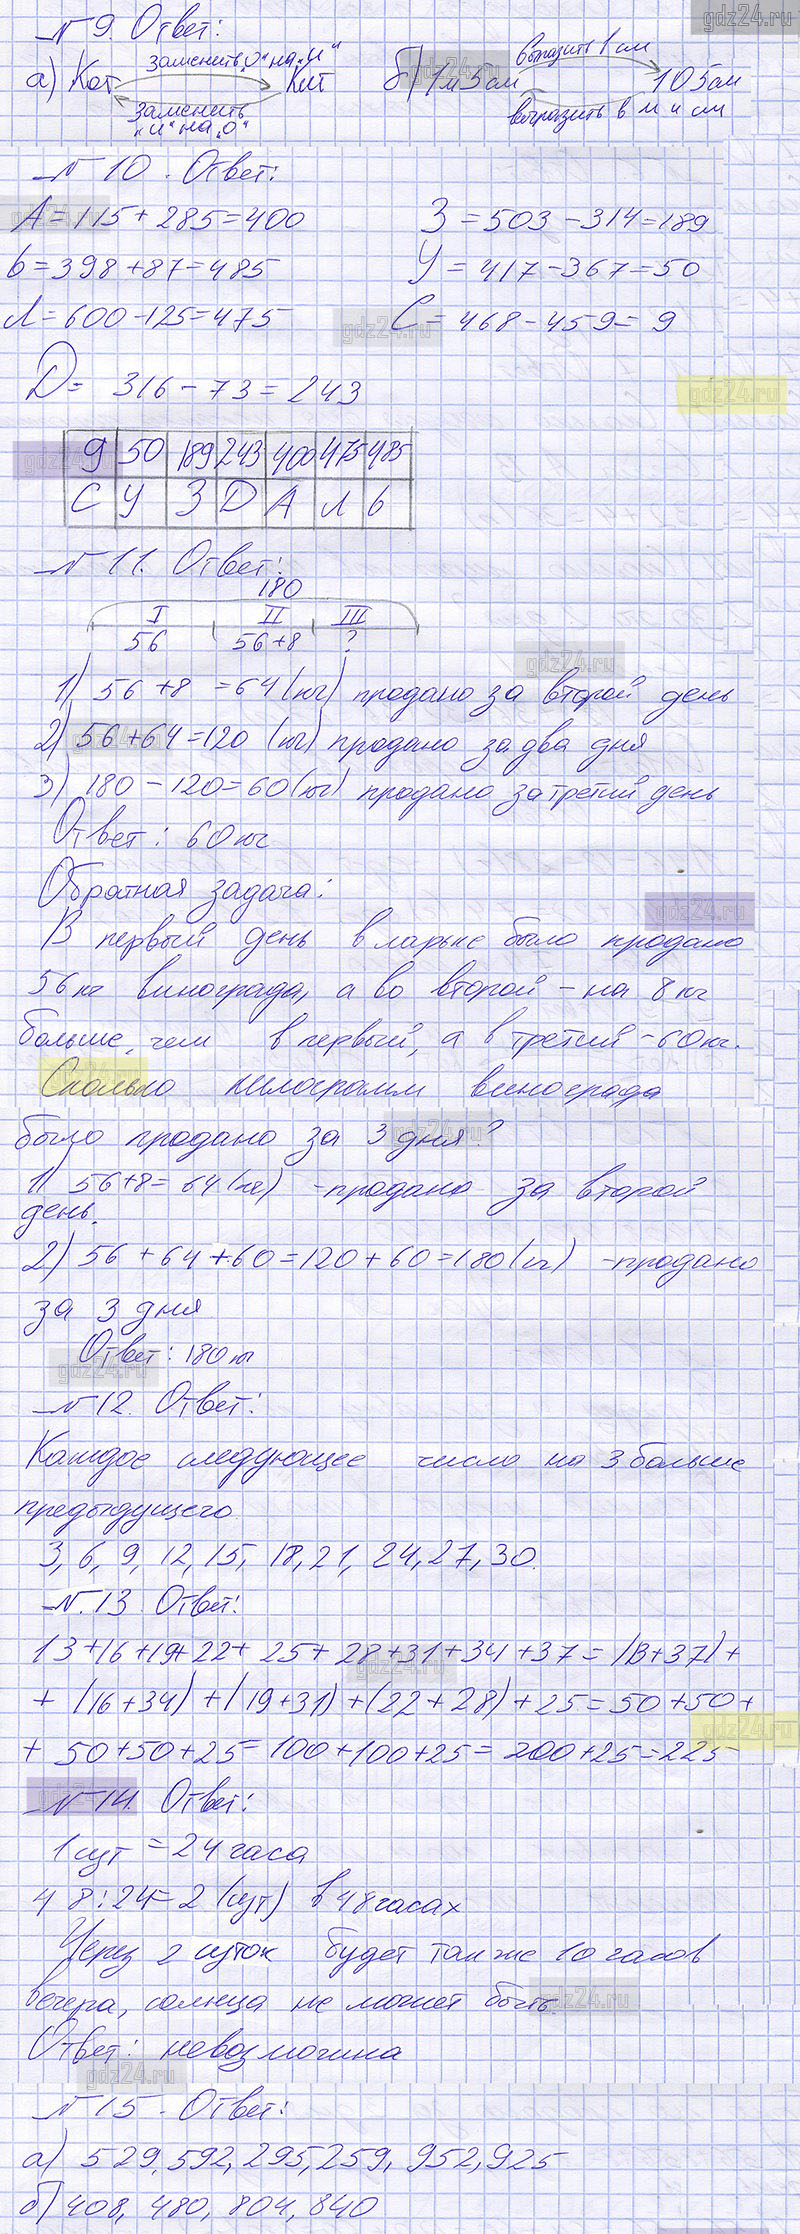 № 9. Ответ:
gdz24.ru
заменить „о" на „и"
выразить в см
а) Кот Кит б) 1м 5см 105см
заменить
„и" на „о"
выразить в м и см
№ 10. Ответ:
А = 115 + 285 = 400 З = 503 - 314 = 189
Ь = 398 + 87 = 485 У = 417 - 367 = 50
Л = 600 - 125 = 475 С = 468 - 459 = 9
gdz24.ru
Д = 316 - 73 = 243
gdz24.ru
9 50 189 243 400 475 485
С У З Д А Л Ь
№ 11. Ответ:
180
I II III
56 56+8 ?
gdz24.ru
1) 56 + 8 = 64 (кг) продано за второй день
2) 56 + 64 = 120 (кг) продано за два дня
3) 180 - 120 = 60 (кг) продано за третий день
Ответ: 60 кг
Обратная задача:
gdz24.ru
В первый день в ларьке было продано
56 кг винограда, а во второй - на 8 кг
больше, чем в первый, а в третий - 60 кг.
Сколько килограмм винограда
было продано за 3 дня?
1) 56+8 = 64 (кг) - продано за второй
день.
2) 56 + 64 + 60 = 120 + 60 = 180 (кг) - продано
за 3 дня
Ответ: 180 кг
gdz24.ru
№ 12. Ответ:
Каждое следующее число на 3 больше
предыдущего.
3, 6, 9, 12, 15, 18, 21, 24, 27, 30.
№ 13. Ответ:
13 + 16 + 19 + 22 + 25 + 28 + 31 + 34 + 37 = (13 + 37) +
+ (16 + 34) + (19 + 31) + (22 + 28) + 25 = 50 + 50 +
gdz24.ru
+ 50 + 50 + 25 = 100 + 100 + 25 = 200 + 25 = 225
№ 14. Ответ:
1 сут = 24 часа
48 : 24 = 2 (сут) в 48 часах
Через 2 суток будет также 10 часов
вечера, солнца не может быть.
gdz24.ru
Ответ: невозможна
gdz24.ru
№ 15. Ответ:
а) 529, 592, 295, 259, 952, 925
б) 408, 480, 804, 840